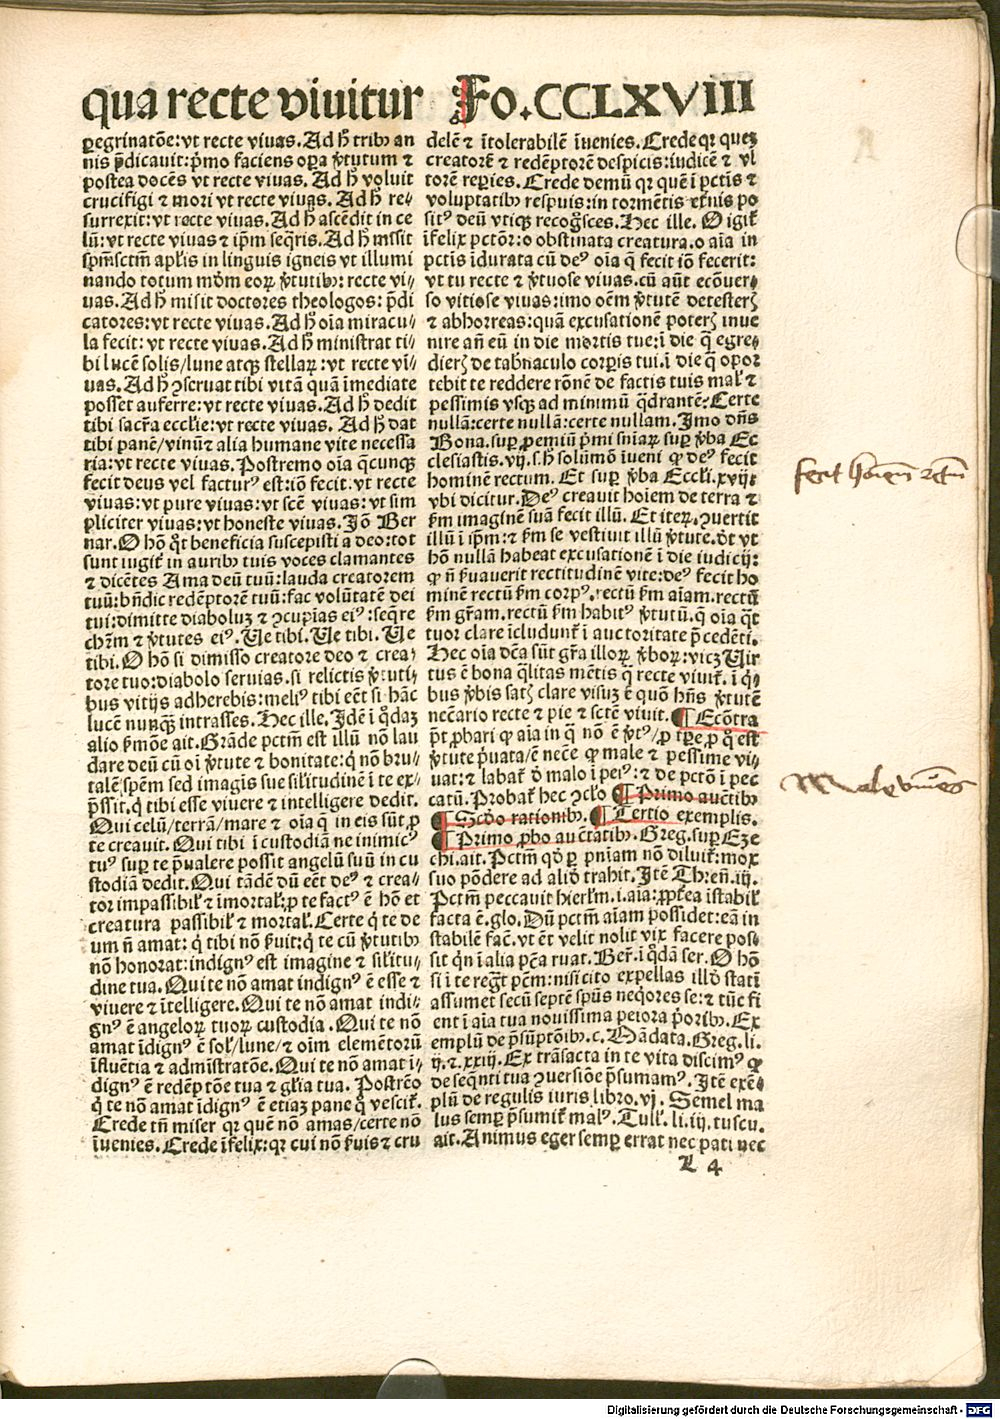 qua recte viuitur Fo.CCLXVIII
ꝑegrinatõe: vt recte viuas. Ad hͦ tribꝰ an
nis p̃dicauit: pͥmo faciens oꝑa ꝟtutum ⁊
postea docẽs vt recte viuas. Ad hͦ voluit
crucifigi ⁊ mori vt recte viuas. Ad hͦ re⸗
surrexit: vt recte viuas. Ad hͦ ascẽdit in ce
lũ: vt recte viuas ⁊ ip̃m seq̃ris. Ad hͦ misit
sp̃m sctm̃ apl̃is in linguis igneis vt illumi
nando totum mũdum eoꝝ ꝟtutibꝰ: recte vi⸗
uas. Ad hͦ misit doctores theologos: p̃di
catores: vt recte viuas. Ad hͦ oĩa miracu⸗
la fecit: vt recte viuas. Ad hͦ ministrat ti⸗
bi lucẽ solis/lune atqꝫ stellaꝝ: vt recte vi⸗
uas. Ad hͦ ꝯseruat tibi vitã quã ĩmediate
posset auferre: vt recte viuas. Ad hͦ dedit
tibi sacr̃a eccl̃ie: vt recte viuas. Ad hͦ dat
tibi panẽ/vinũ ⁊ alia humane vite necessa
ria: vt recte viuas. Postremo oĩa q̃cunqꝫ
fecit deus vel facturꝰ est: iõ fecit. vt recte
viuas: vt pure viuas: vt scẽ viuas: vt sim
pliciter viuas: vt honeste viuas. Jõ Ber
nar. O hõ q̃t beneficia suscepisti a deo: tot
sunt iugiť in auribꝰ tuis voces clamantes
⁊ dicẽtes Ama deũ tuũ: lauda creatorem
tuũ: bñdic redẽptorẽ tuũ: fac volũtatẽ dei
tui: dimitte diaboluꝫ ⁊ ꝯcupĩas eiꝰ: seq̃re
chr̃m ⁊ ꝟtutes eiꝰ. Ue tibi. Ue tibi. Ue
tibi. O hõ si dimisso creatore deo ⁊ crea⸗
tore tuo: diabolo seruias. si relictis ꝟtuti⸗
bus vitijs adherebis: meliꝰ tibi eẽt si hãc
lucẽ nunqꝫ intrasses. Hec ille. Jdẽ ĩ q̃daꝫ
alio ẜmõe ait. Grãde pctm̃ est illũ nõ lau
dare deũ cũ oĩ ꝟtute ⁊ bonitate: q̃ nõ bru⸗
talẽ spẽm sed imagĩs sue sil̃itudinẽ ĩ te ex⸗
p̃ssit. q̃ tibi esse viuere ⁊ intelligere dedit.
Qui celũ/terrã/mare ⁊ oĩa q̃ in eis sũt ꝓ
te creauit. Qui tibi ĩ custodiã ne inimicꝰ
tuꝰ suꝑ te p̃ualere possit angelũ suũ in cu
stodiã dedit. Qui tãdẽ dũ eẽt deꝰ ⁊ crea⸗
tor impassibiľ ⁊ ĩmortaľ: ꝓ te factꝰ ẽ hõ et
creatura passibiľ ⁊ mortaľ. Certe qͥ te de
um ñ amat: qͥ tibi nõ ẜuit: qͥ te cũ ꝟtutibꝰ
nõ honorat: indignꝰ est imagine ⁊ sil̃itu⸗
dine tua. Qui te nõ amat indignꝰ ẽ esse ⁊
viuere ⁊ ĩtelligere. Qui te nõ amat indi⸗
gnꝰ ẽ angeloꝝ tuoꝝ custodia. Qui te nõ
amat ĩdignꝰ ẽ soľ/lune/⁊ oĩm elemẽtorũ
ĩfluẽtia ⁊ admĩstratõe. Qui te nõ amat ĩ⸗
dignꝰ ẽ redẽptõe tua ⁊ gl̃ia tua. Postrẽo
qͥ te nõ amat ĩdignꝰ ẽ etiaꝫ pane q̃ vesciť.
Crede tñ miser qꝛ quẽ nõ amas/certe nõ
ĩuenies. Crede ĩfelix: qꝛ cui nõ ẜuis ⁊ cru
delẽ ⁊ ĩtolerabilẽ ĩuenies. Crede qꝛ queꝫ
creatorẽ ⁊ redẽptorẽ despicis: iudicẽ ⁊ vl
torẽ reꝑies. Crede demũ qꝛ quẽ ĩ pctĩs ⁊
voluptatibꝰ respuis: in tormẽtis et̃nis po
sitꝰ deũ vtiqꝫ recog̃sces. Hec ille. O igiť
ĩfelix pctõr: o obstinata creatura. o aĩa in
pctĩs ĩdurata cũ deꝰ oĩa q̃ fecit iõ fecerit:
vt tu recte ⁊ ꝟtuose viuas. cũ aũt ecõuer⸗
so vitiose viuas: imo oẽm ꝟtutẽ detesterꝫ
⁊ abhorreas: quã excusationẽ poterꝫ inue
nire añ eũ in die mortis tue: ĩ die q̃ egre⸗
dierꝫ de tab̃naculo corꝑis tui. ĩ die q̃ opor
tebit te reddere rõnẽ de factis tuis maľ ⁊
pessimis vsqꝫ ad minimũ q̃drantẽ? Certe
nullã: certe nullã: certe nullam. Jmo dñs
Bona. suꝑ ꝓemiũ pͥmi sñiaꝝ suꝑ ꝟba Ec
clesiastis. vij. s. hͦ solũmõ ĩueni qꝙ deꝰ fecit
hominẽ rectum. Et suꝑ ꝟba Eccľi. xvij:
vbi dicitur. Deꝰ creauit hoĩem de terra ⁊
ẜm imaginẽ suã fecit illũ. Et iteꝝ. ꝯuertit
illũ ĩ ip̃m: ⁊ ẜm se vestiuit illũ ꝟtute. ð̵t vt
hõ nullã habeat excusationẽ ĩ die iudicij:
qꝙ ñ ẜuauerit rectitudinẽ vite: deꝰ fecit ho
minẽ rectũ ẜm corpꝰ. rectũ ẜm aĩam. rectũ
ẜm gr̃am. rectũ ẜm habitꝰ ꝟtutũ. q̃ oĩa q̃t
tuor clare ĩcludunť ĩ auctoritate p̃cedẽti.
Hec oĩa dẽa sũt gr̃a illoꝝ ꝟboꝝ: vicꝫ Uir
tus ẽ bona q̃litas mẽtis q̃ recte viuiť. ĩ qͥ⸗
bus ꝟbis satꝫ clare visuꝫ ẽ quõ hñs ꝟtutẽ
necẽario recte ⁊ pie ⁊ sctẽ viuit. ¶ Ecõtra
p̃t ꝓbari qꝙ aĩa in q̃ nõ ẽ ꝟtꝰ/ꝓ tꝑe ꝓ q̃ est
ꝟtute p̃uata/ẽ necẽ qꝙ male ⁊ pessime vi⸗
uat: ⁊ labať ð̵ malo ĩ peiꝰ: ⁊ de pctõ ĩ pec
catũ. Probať hec ꝯclo ¶ Primo auctĩbꝰ
¶ Scð̵o rationibꝰ. ¶ Tertio exemplis.
¶ Primo ꝓbo auctatibꝰ. Greg. suꝑ Eze
chi. ait. Pctm̃ qð̵ ꝑ pñiam nõ diluiť: mox
suo põdere ad alið̵ trahit. Jtẽ Threñ. iij.
Pctm̃ peccauit hierlm̃. i. aĩa: ꝓpťea ĩstabiľ
facta ẽ. glo. Dũ pctm̃ aĩam possidet: eã in
stabilẽ fac̃. vt ẽt velit nolit vix facere pos⸗
sit q̃n ĩ alia pc̃a ruat. Ber. ĩ q̃dã ser. O hõ
si ĩ te regͣt pc̃m: nisi cito expellas illð̵ stati
assumet secũ septẽ sp̃us neq̃ores se: ⁊ tũc fi
ent ĩ aĩa tua nouissima peiora p̃oribꝰ. Ex
emplũ de p̃sũptõibꝰ. c. Mãdata. Greg. li.
ij. ⁊. xxij. Ex trãsacta in te vita discimꝰ qꝙ
de seq̃nti tua ꝯuersiõe p̃sumamꝰ. Jtẽ exẽ⸗
plũ de regulis iuris. libro. vj. Semel ma
lus semꝑ p̃sumiť malꝰ. Tull. li. iij. tuscu.
ait. Animus eger semꝑ errat nec pati nec
L 4
fecit hoĩem rectũ
Male viuẽs
Digitalisierung gefördert durch die Deutsche Forschungsgemeinschaft - DFG